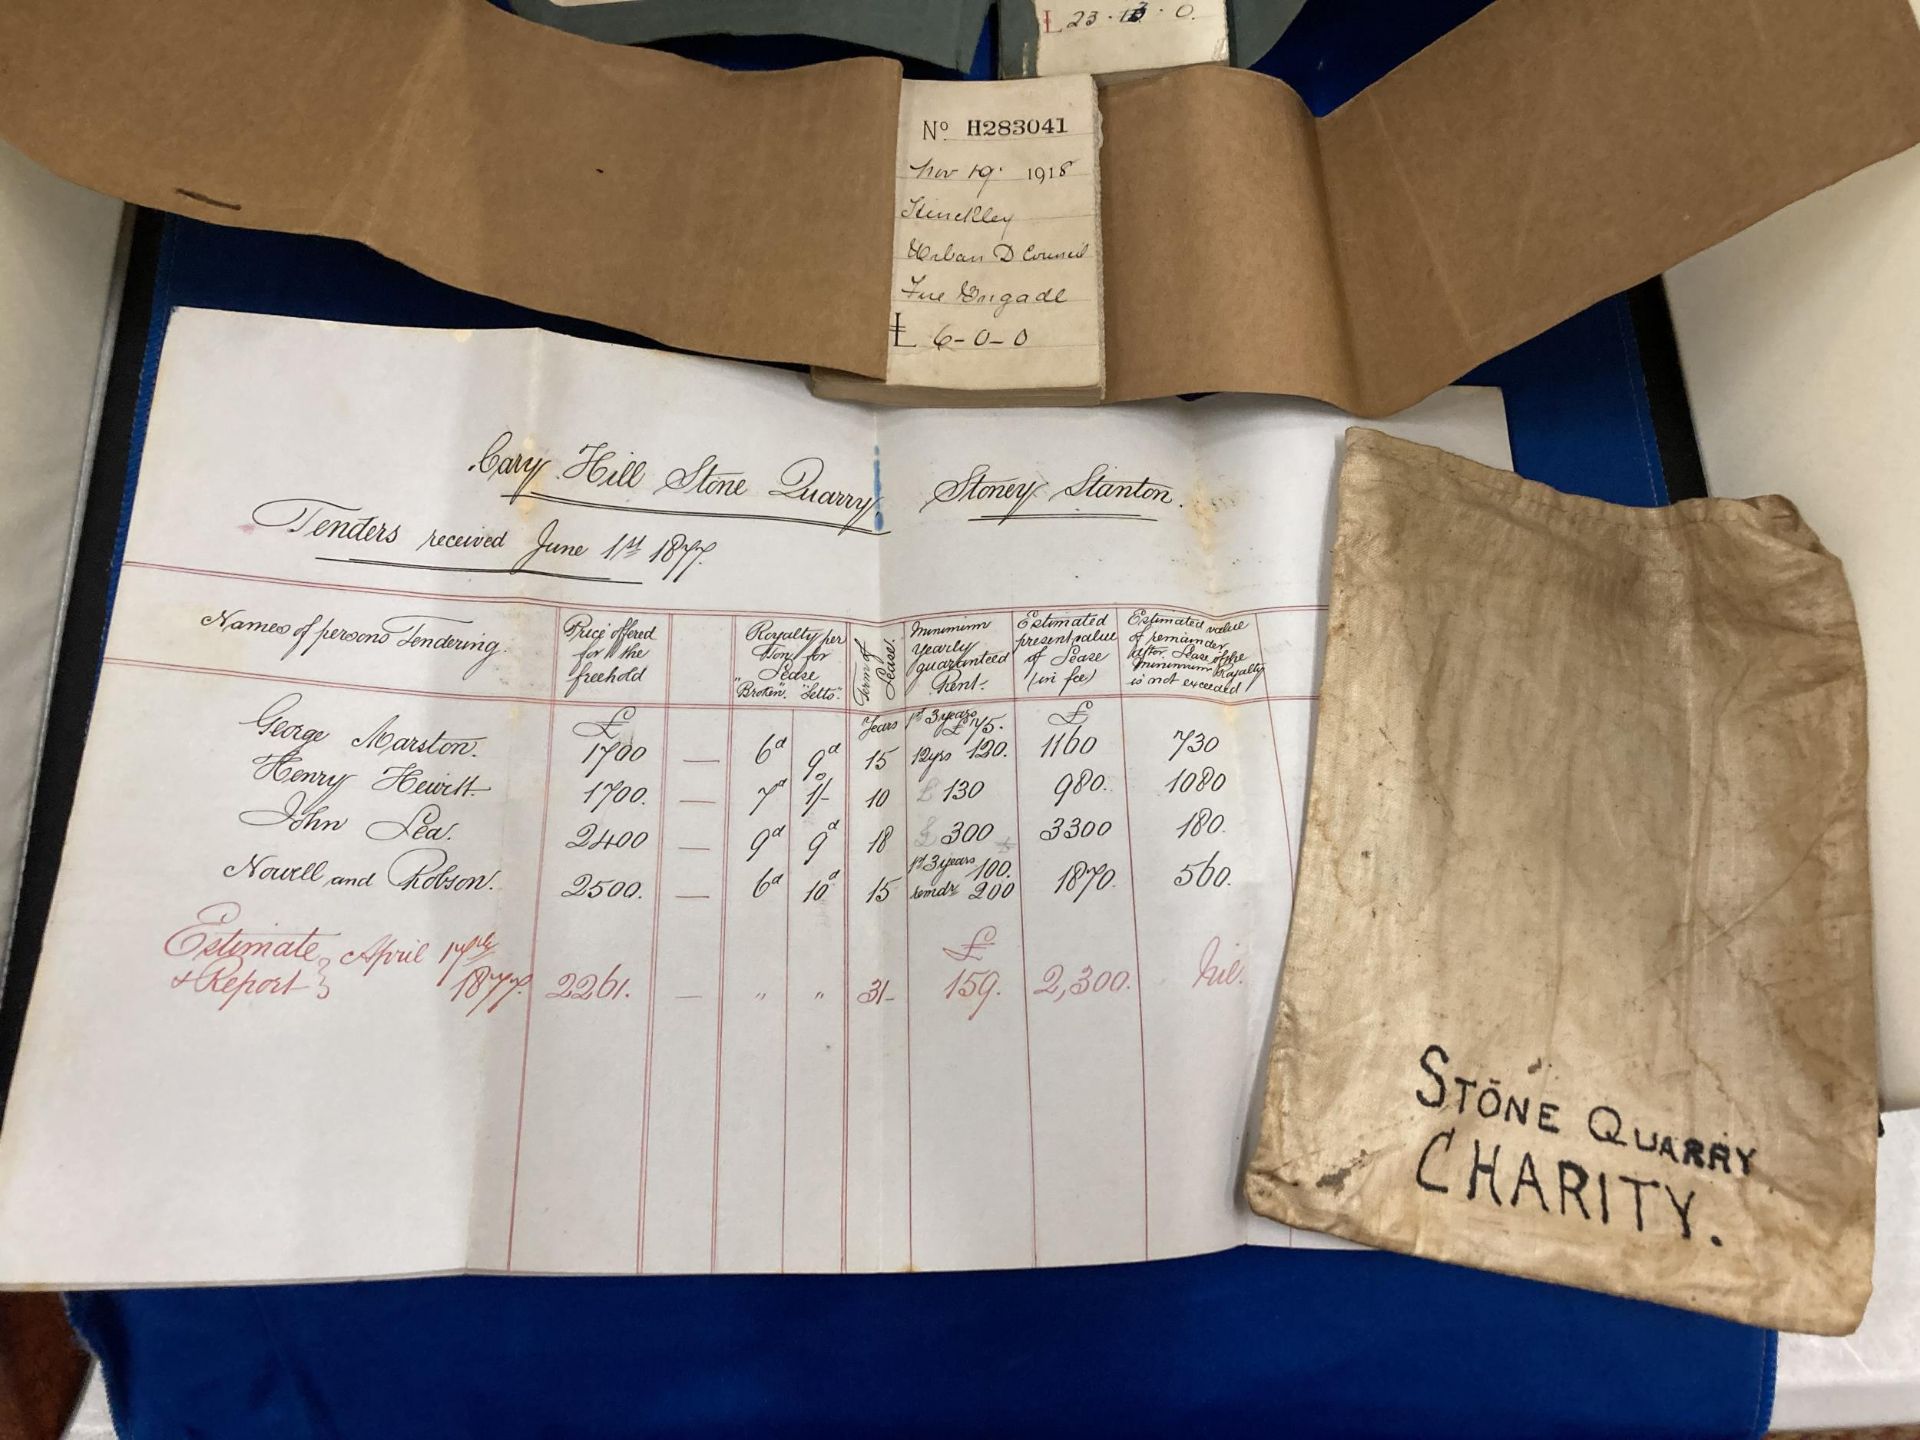 £23 · 13 · 0.
No H283041
Nov 19. 1918
Hinckley
Urban D Council
Fire Brigade
£ 6-0-0
Cary Hill Stone Quarry Stoney Stanton.
Tenders received June 1st 1877.
Names of persons Tendering. Price offered for the freehold Royalty per ton for Lease "Broken" "Setts" Term of Lease. Minimum yearly guaranteed Rent. Estimated present value of Lease (in fee) Estimated value of remainder after Lease if the minimum Royalty is not exceeded
£ Years 1st 3 years £75. £
George Marston. 1700 — 6d 9d 15 12yrs 120. 1160 730
Henry Hewitt 1700. — 7d 1/- 10 £130 980. 1080
John Lea. 2400 — 9d 9d 18 £300 3300 180.
1st 3 years 100.
Nowell and Robson. 2500. — 6d 10d 15 remdr 200 1870. 560.
Estimate & Report } April 17th 1877. 2261. — " " 31- £ 159. 2,300. Nil.
STONE QUARRY
CHARITY.